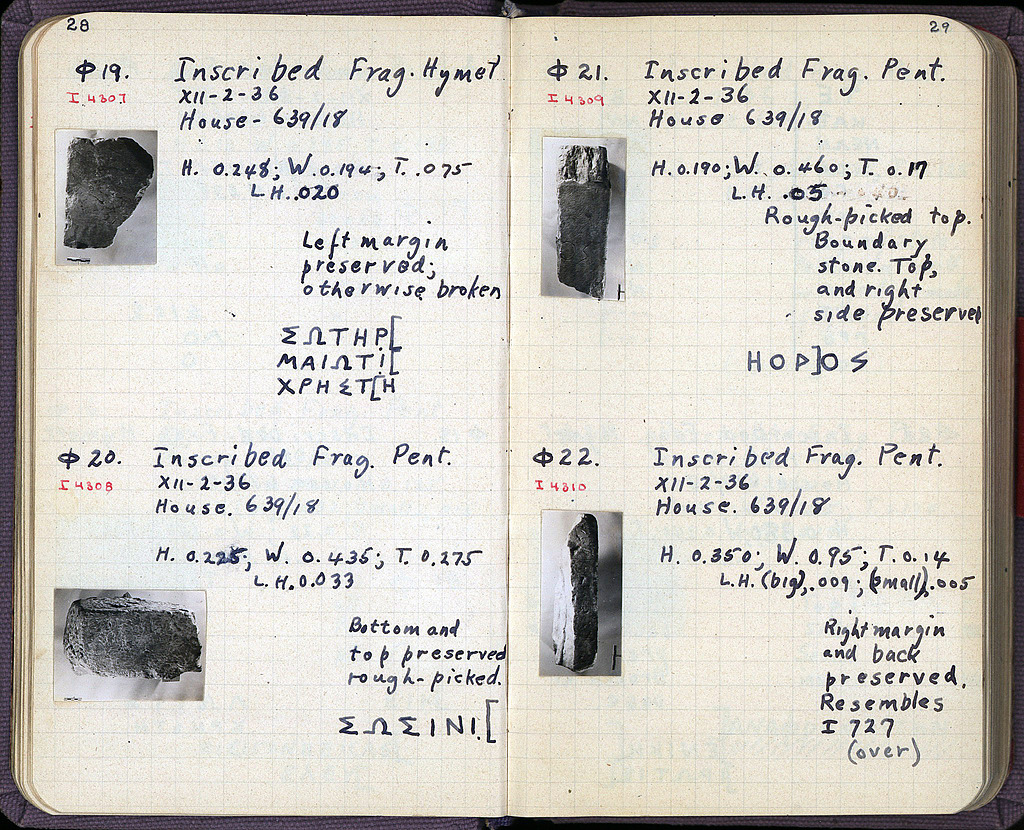 28
Φ19. Inscribed Frag. Hymet.
I 4307 XII-2-36
House- 639/18
H. 0.248; W. 0.194; T. .075
L.H. .020
Left margin
preserved;
otherwise broken
ΣΩΤΗΡ[
ΜΑΙΩΤΙ[
ΧΡΗΣΤ[Η
Φ20. Inscribed Frag. Pent.
I 4308 XII-2-36
House. 639/18
H. 0.225; W. 0.435; T. 0.275
L.H. 0.033
Bottom and
top preserved
rough-picked.
ΣΩΣΙΝΙ[
29
Φ21. Inscribed Frag. Pent.
I 4309 XII-2-36
House 639/18
H. 0.190; W. 0.460; T. 0.17
L.H. .05
Rough-picked top.
Boundary
stone. Top,
and right
side preserved
ΗΟΡ]ΟΣ
Φ22. Inscribed Frag. Pent.
I 4310 XII-2-36
House. 639/18
H. 0.350; W. 0.95; T. 0.14
L.H. (big), .009; (small), .005
Right margin
and back
preserved.
Resembles
I 727
(over)